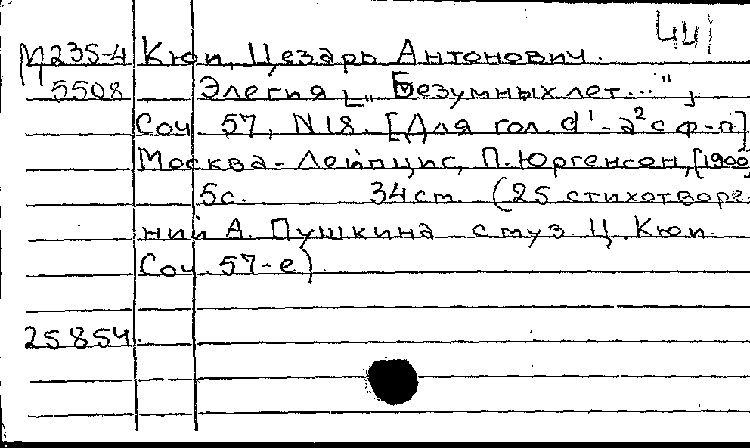 441
М235-4 Кюи, Цезарь Антонович.
5508 Элегия [„Безумных лет..."],
Соч. 57, N18. [Для гол. d¹-a² с ф-п]
Москва-Лейпциг, П. Юргенсон, [1900]
5с. 34 ст. (25 стихотворе-
ний А. Пушкина с муз. Ц. Кюи.
Соч. 57-е)
25854